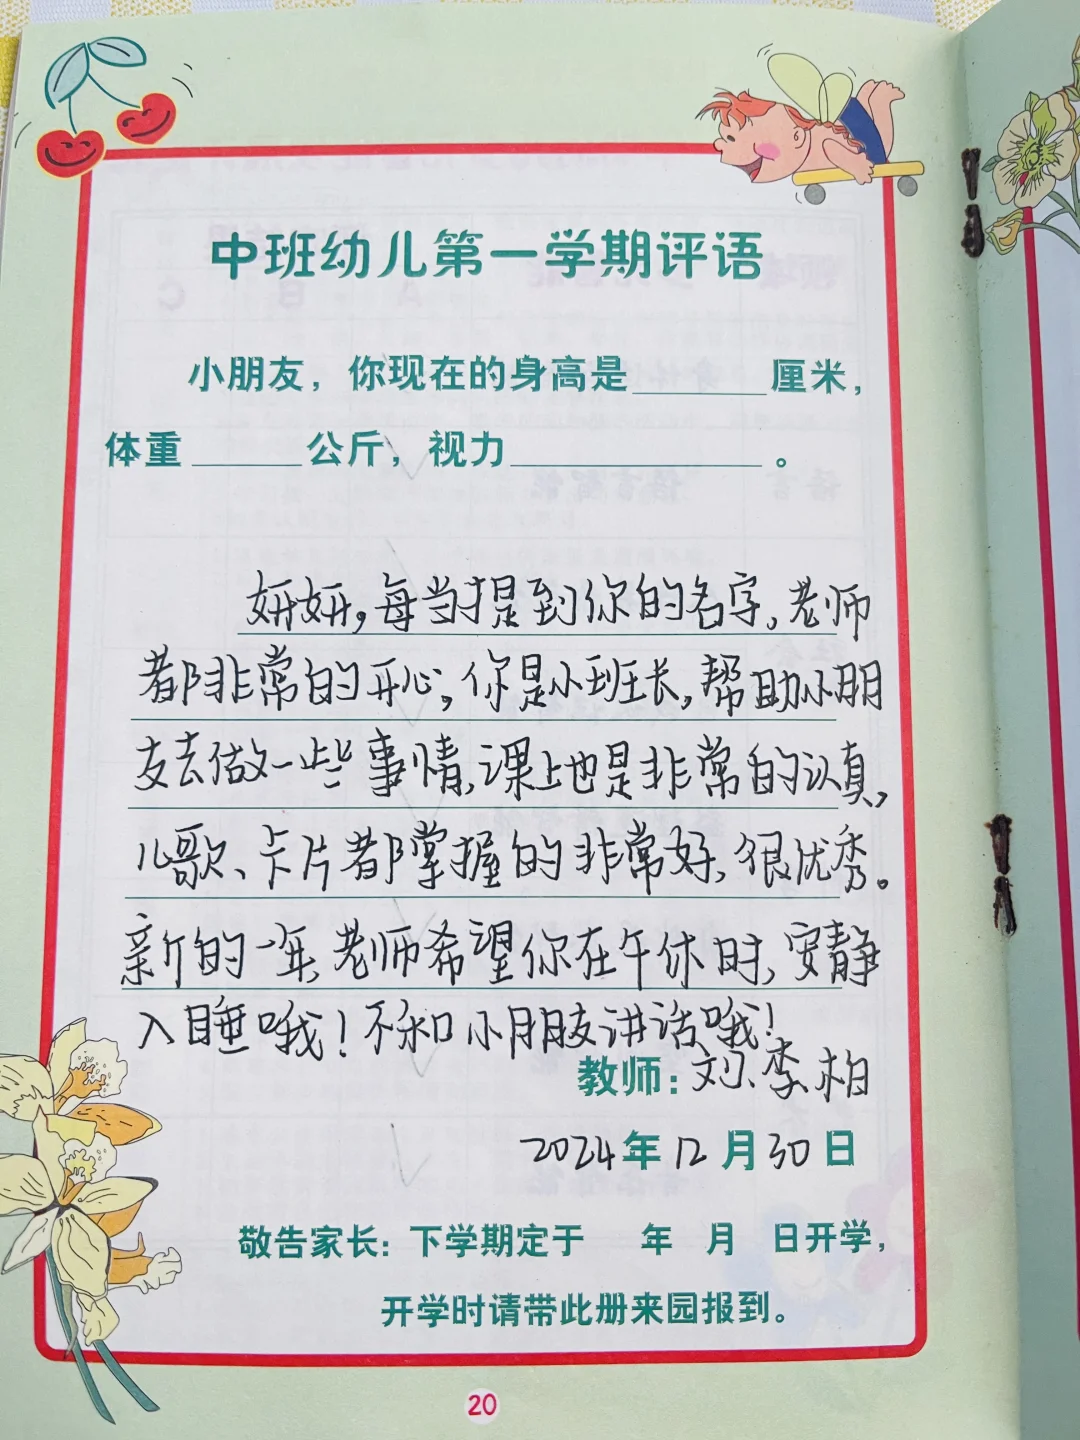 中班幼儿第一学期评语
小朋友，你现在的身高是______厘米，
体重______公斤，视力____________。
妍妍，每当提到你的名字，老师
都非常的开心，你是小班长，帮助小朋
友去做一些事情，课上也是非常的认真，
儿歌、卡片都掌握的非常好，很优秀。
新的一年，老师希望你在午休时，安静
入睡哦！不和小朋友讲话哦！
教师：刘、李、柏
2024年12月30日
敬告家长：下学期定于　　年　月　日开学，
开学时请带此册来园报到。
20